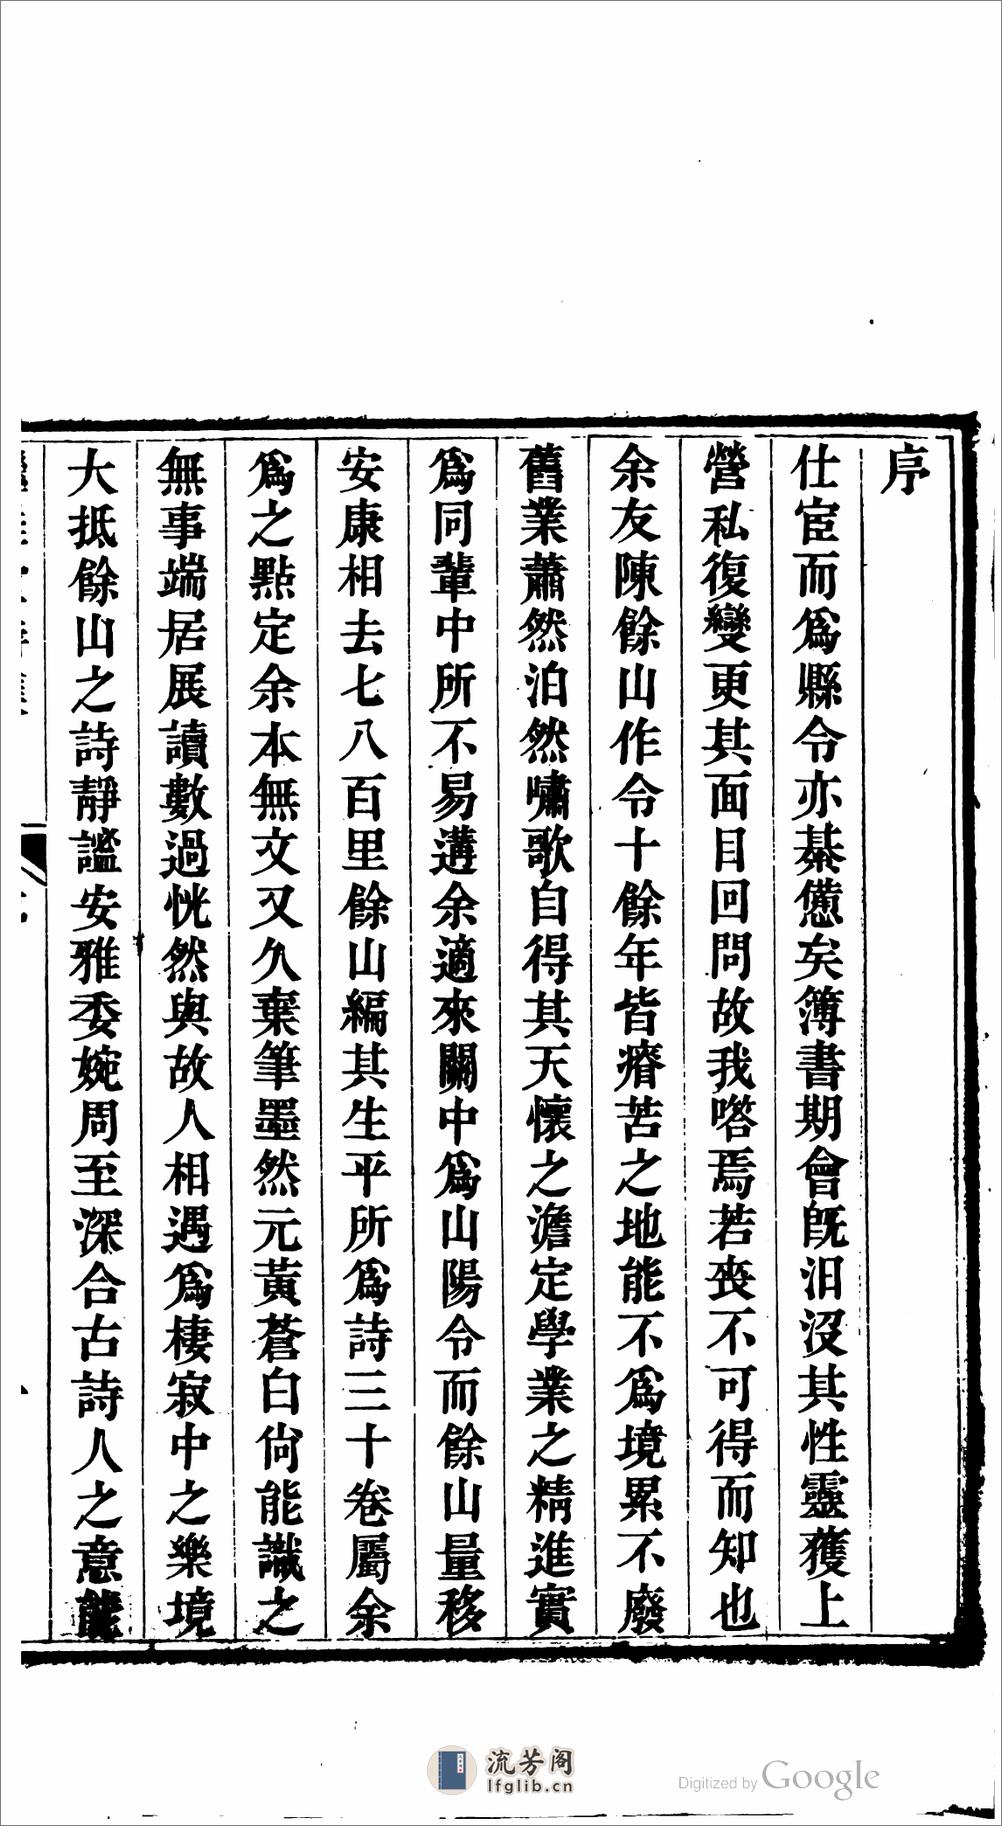 序
仕宦而爲縣令亦綦憊矣簿書期會旣汨沒其性靈獲上
營私復變更其面目回問故我嗒焉若喪不可得而知也
余友陳餘山作令十餘年皆瘠苦之地能不爲境累不廢
舊業蕭然泊然嘯歌自得其天懷之澹定學業之精進實
爲同輩中所不易遘余適來關中爲山陽令而餘山量移
安康相去七八百里餘山編其生平所爲詩三十卷屬余
爲之點定余本無文又久棄筆墨然元黃蒼白尙能識之
無事端居展讀數過恍然與故人相遇爲棲寂中之樂境
大抵餘山之詩靜謐安雅委婉周至深合古詩人之意能
流芳阁
lfglib.cn
Digitized by Google